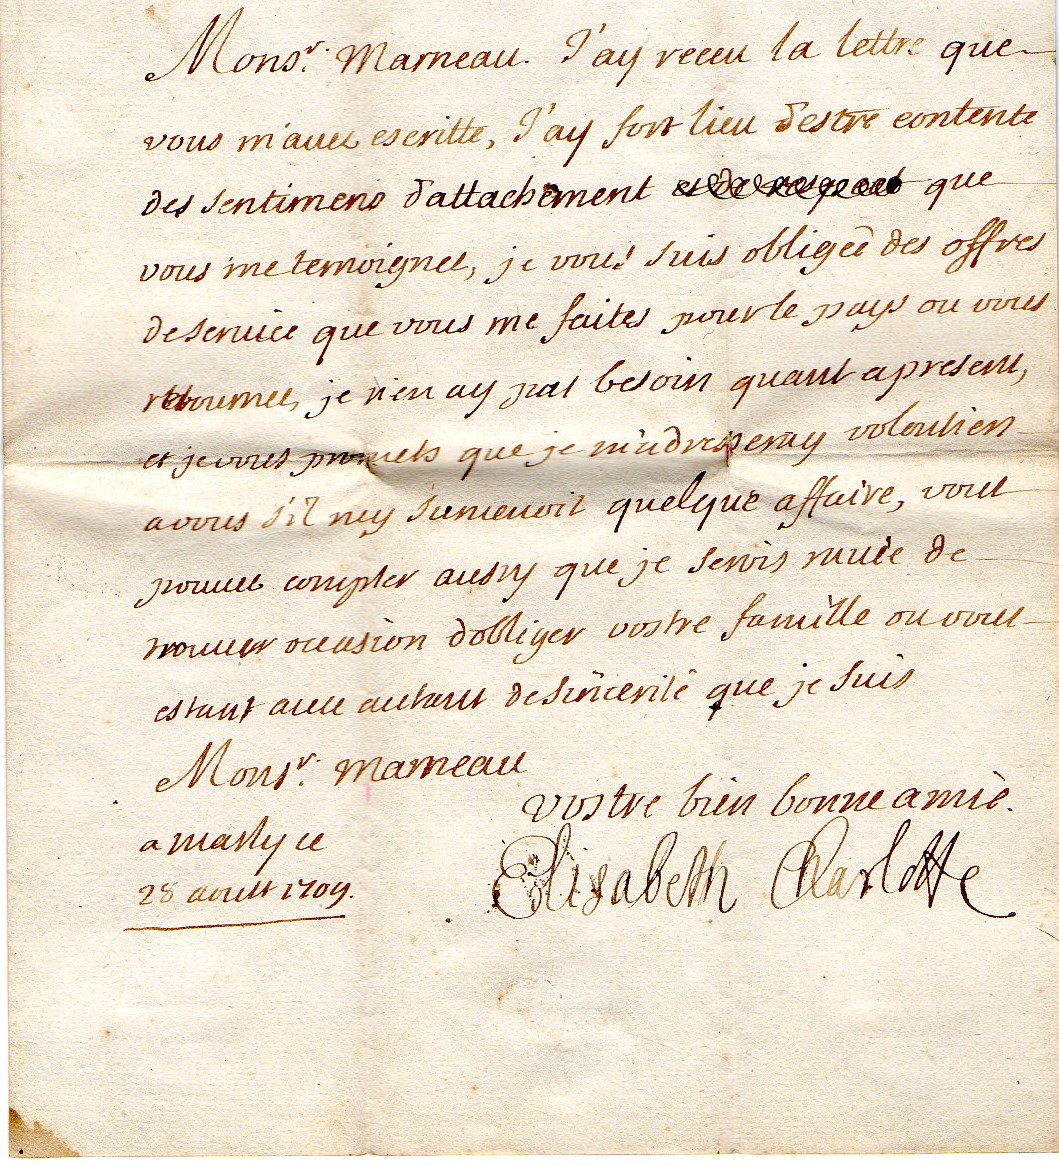 Monsr. Marneau. J'ay receu la lettre que
vous m'avez escritte, J'ay fort lieu d'estre contente
des sentimens d'attachement et de respect que
vous me temoignez, je vous suis obligeé des offres
de service que vous me faites pour le pays ou vous
retournez, je n'en ay pas besoin quant a present,
et je vous promets que je m'adresseray volontiers
a vous s'il m'y survenoit quelque affaire, vous
pouvez compter aussy que je serois ravie de
trouver occasion d'obliger vostre famille ou vous
estant avec autant de sincerité que je suis
Monsr. Marneau
vostre bien bonne amie.
a marly ce
28 aoust 1709.
Elisabeth Charlotte